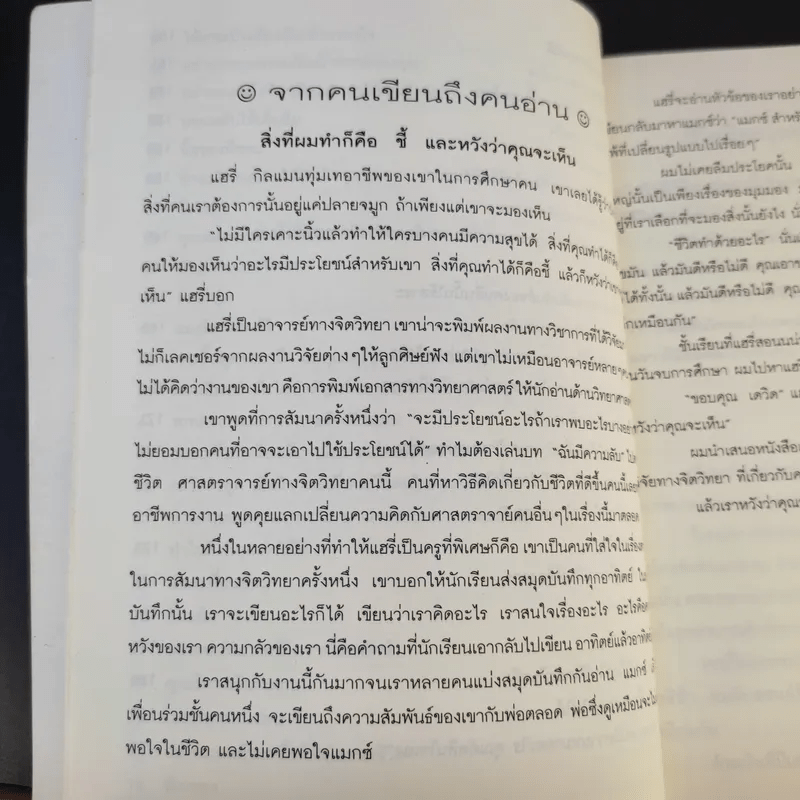 จากคนเขียนถึงคนอ่าน
สิ่งที่ผมทำก็คือ ชี้ และหวังว่าคุณจะเห็น
แฮรี่ กิลแมนทุ่มเทอาชีพของเขาในการศึกษาคน เขาเลยได้รู้ว่า
สิ่งที่คนเราต้องการนั้นอยู่แค่ปลายจมูก ถ้าเพียงแต่เขาจะมองเห็น
"ไม่มีใครเคาะนิ้วแล้วทำให้ใครบางคนมีความสุขได้ สิ่งที่คุณทำได้คือ
คนให้มองเห็นว่าอะไรมีประโยชน์สำหรับเขา สิ่งที่คุณทำได้ก็คือชี้ แล้วก็หวังว่า
เห็น" แฮรี่บอก
แฮรี่เป็นอาจารย์ทางจิตวิทยา เขาน่าจะพิมพ์ผลงานทางวิชาการที่ได้วิจัย
ไม่ก็เลคเชอร์จากผลงานวิจัยต่างๆให้ลูกศิษย์ฟัง แต่เขาไม่เหมือนอาจารย์หลาย
ไม่ได้คิดว่างานของเขา คือการพิมพ์เอกสารทางวิทยาศาสตร์ ให้นักอ่านด้านวิทยาศาสตร์
เขาพูดที่การสัมนาครั้งหนึ่งว่า "จะมีประโยชน์อะไรถ้าเราพบอะไรบางอย่าง
ไม่ยอมบอกคนที่อาจจะเอาไปใช้ประโยชน์ได้" ทำไมต้องเล่นบท "ฉันมีความลับ"
ชีวิต ศาสตราจารย์ทางจิตวิทยาคนนี้ คนที่หาวิธีคิดเกี่ยวกับชีวิตที่ดีขึ้นคนนี้
อาชีพการงาน พูดคุยแลกเปลี่ยนความคิดกับศาสตราจาย์คนอื่นๆในเรื่องนี้มาตลอด
หนึ่งในหลายอย่างที่ทำให้แฮรี่เป็นครูที่พิเศษก็คือ เขาเป็นคนที่ใส่ใจในเรื่อง
ในการสัมนาทางจิตวิทยาครั้งหนึ่ง เขาบอกให้นักเรียนส่งสมุดบันทึกทุกอาทิตย์ ใน
บันทึกนั้น เราจะเขียนอะไรก็ได้ เขียนว่าเราคิดอะไร เราสนใจเรื่องอะไร อะไรคือ
หวังของเรา ความกลัวของเรา นี่คือคำถามที่นักเรียนเอากลับไปเขียน อาทิตย์แล้วอาทิตย์
เราสนุกกับงานนี้กันมากจนเราหลายคนแบ่งสมุดบันทึกกันอ่าน แมกซ์
เพื่อนร่วมชั้นคนหนึ่ง จะเขียนถึงความสัมพันธ์ของเขากับพ่อตลอด พ่อซึ่งดูเหมือนจะไม่
พอใจในชีวิต และไม่เคยพอใจแมกซ์
แฮรี่จะอ่านหัวข้อของเราอย่าง
เขียนกลับมาหาแมกซ์ว่า "แมกซ์ สำหรับ
ที่เปลี่ยนรูปแบบไปเรื่อยๆ"
ผมไม่เคยลืมประโยคนั้น
ใหญ่นั้นเป็นเพียงเรื่องของมุมมอง
อยู่ที่เราเลือกที่จะมองสิ่งนั้นยังไง
"ชีวิตทำด้วยอะไร"
แล้วมันดีหรือไม่ดี คุณเอา
ได้ทั้งนั้น แล้วมันดีหรือไม่ดี
เหมือนกัน"
ชั้นเรียนที่แฮรี่สอน
วันจบการศึกษา ผมไปหาแฮรี่
"ขอบคุณ เดวิด"
หวังว่าคุณจะเห็น"
ผมนำเสนอหนังสือ
วิจัยทางจิตวิทยา ที่เกี่ยวกับ
แล้วเราหวังว่าคุณ